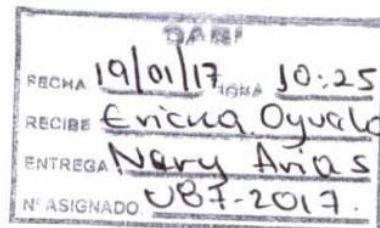 DARI
FECHA 19/01/17 HORA 10:25
RECIBE Ericka Oyuela
ENTREGA Nery Arias
Nº ASIGNADO 087-2017.